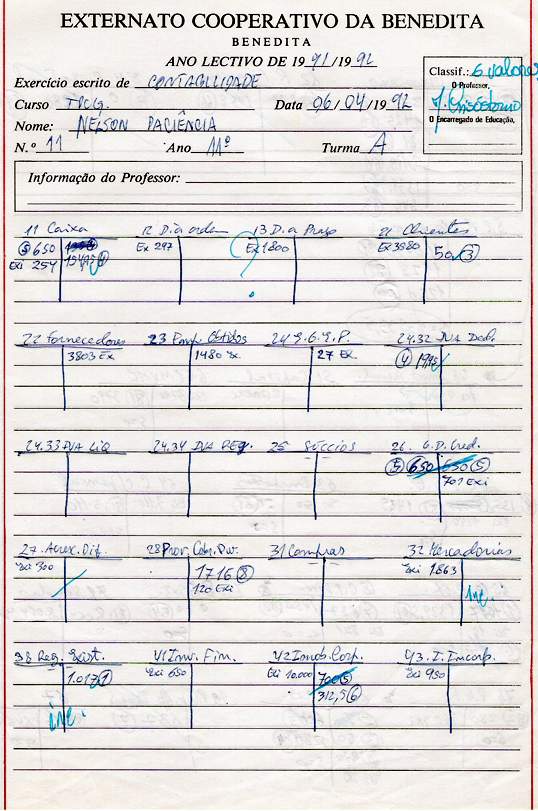 EXTERNATO COOPERATIVO DA BENEDITA
BENEDITA
ANO LECTIVO DE 1991/1992
Exercício escrito de CONTABILIDADE
Classif.: 6 valores
O Professor,
Curso Data 06/04/1992
O Encarregado de Educação,
Nome: NELSON PACIÊNCIA
N.º 11 Ano 11º Turma A
Informação do Professor:
11 Caixa 12 D. à ordem 13 D. a Prazo 21 Clientes
5 650 Ex 297 Ex 1800 Ex 3980 50 3
Exi 254
22 Fornecedores 23 Emp. Obtidos 24 S.G.S.P. 24.32 IVA Ded.
3803 Ex 1480 Ex. 27 Ex. 4
24.33 IVA Liq 24.34 IVA REg. 25 Sócios 26. O.D.Cred.
5 650 650 5
701 Exi
27. Acrex. Dif. 28 Prov. Cobr. Duv. 31 Compras 32 Mercadorias
Exi 300 1716 8 Exi 1.863
120 Exi inc.
38 Reg. Exist. 41 Inv. Fin. 42 Imob. Corp. 43. I. Incorp.
1.017 1 Exi 650 Exi 10.000 700 5 Exi 950
312,5 6
inc.